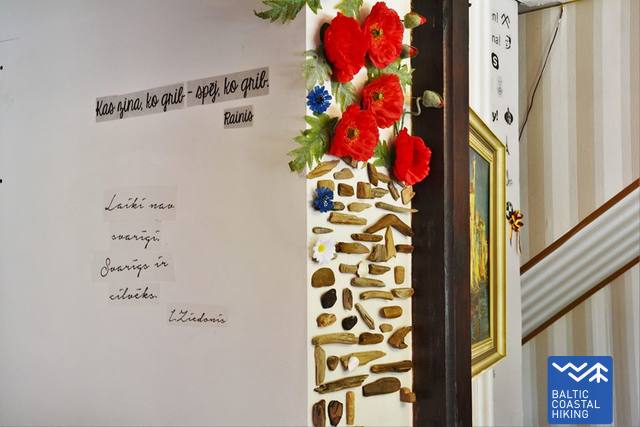 Kas zina, ko grib - spēj, ko grib.
Rainis
Laiki nav
svarīgi.
Svarīgs ir
cilvēks.
I.Ziedonis
BALTIC
COASTAL
HIKING